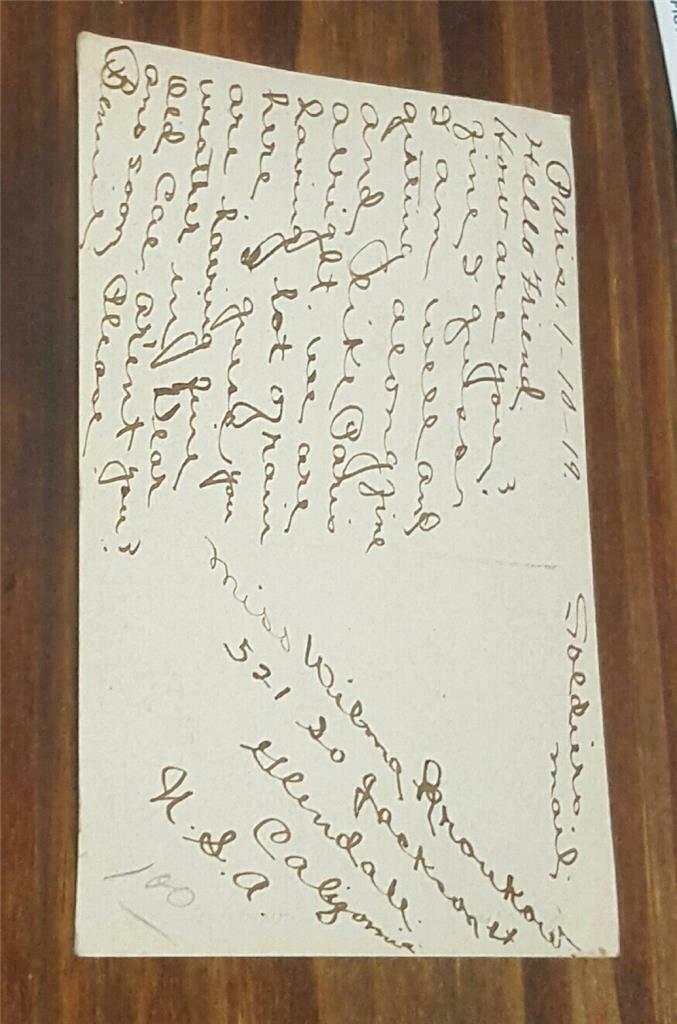 Paris. 1-10-19.
Hello Friend.
How are you?
fine I guess
I am well and
getting along fine
and like Paris
alright. we are
having lot of rain
here I guess you
are having fine
weather in dear
old Cal. aren't you?
ans soon Please
Soldiers
mail.
Miss Wilma
521 So Jackson st
Glendale.
California
U.S.A.
100